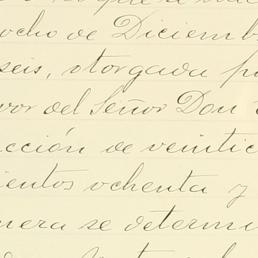 ocho de Diciemb
seis, otorgada p
vor del Señor Don
cción de veintic
ientos ochenta y
nera se determi